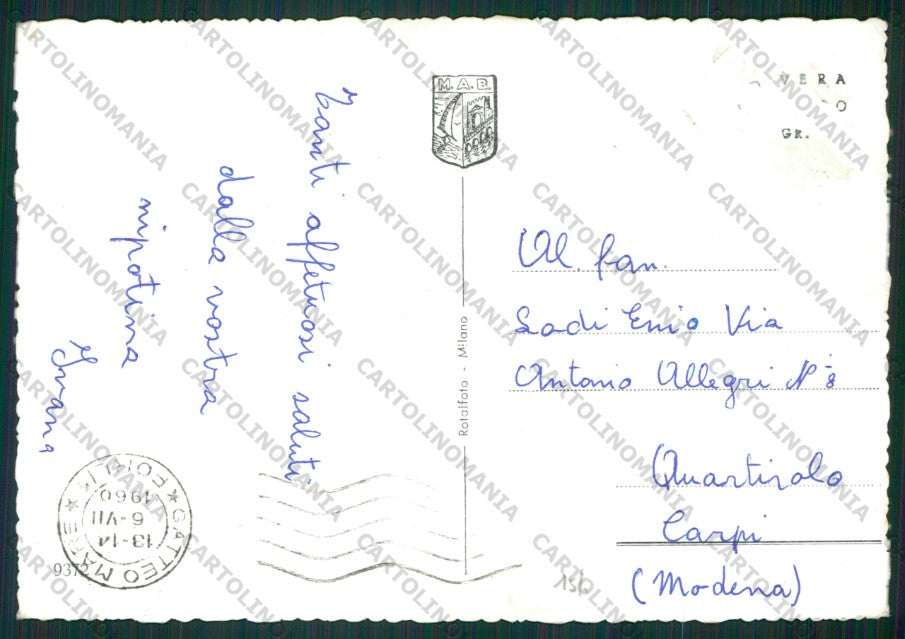 Tanti affetuosi saluti
dalla vostra
nipotina
Ivana
M.A.B.
VERA
O
GR.
Rotalfoto - Milano
Al. fam.
Sadi Enio Via
Antonio Allegri N° 8
Quartirolo
Carpi
(Modena)
GATTEO MARE
13-14
6-VII
1960
937
150
CARTOLINOMANIA